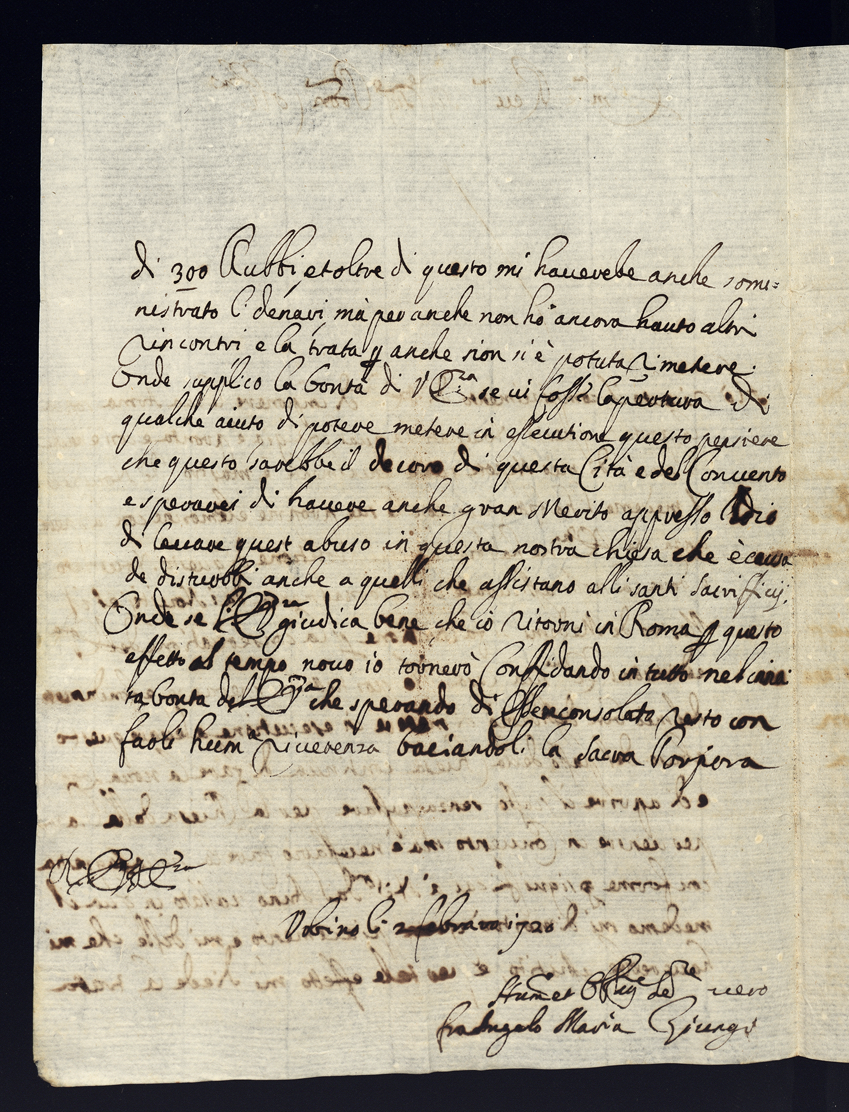 di 300 Rubbi, et oltre di questo mi hauerebe anche somi=
nistrato li denari, mà per anche non hò ancora hauto altri
rincontri e la trata p anche non si è potuta rimetere.
Onde supplico la bontà di V. Em.za se ui fosse l'apertura di
qualche aiuto di potere metere in essecutione questo pensiere
che questo sarebbe il decoro di questa Cità e del Conuento
e sperarei di hauere anche gran Merito appresso Idio
di leuare quest abuso in questa nostra chiesa che è causa
de disturbbi anche a quelli che assistano alli santi Sacrificij.
Onde se giudica bene che io ritorni in Roma p questo
effetto al tempo nouo io tornerò Confidando in tutto nel
ta bonta del che sperando di consolata resto con
riuerenza baciandoli la Sacra Porpora
Vrbino li 2 febraro 1720
Hum et Ser.re uero
fra Angelo Maria